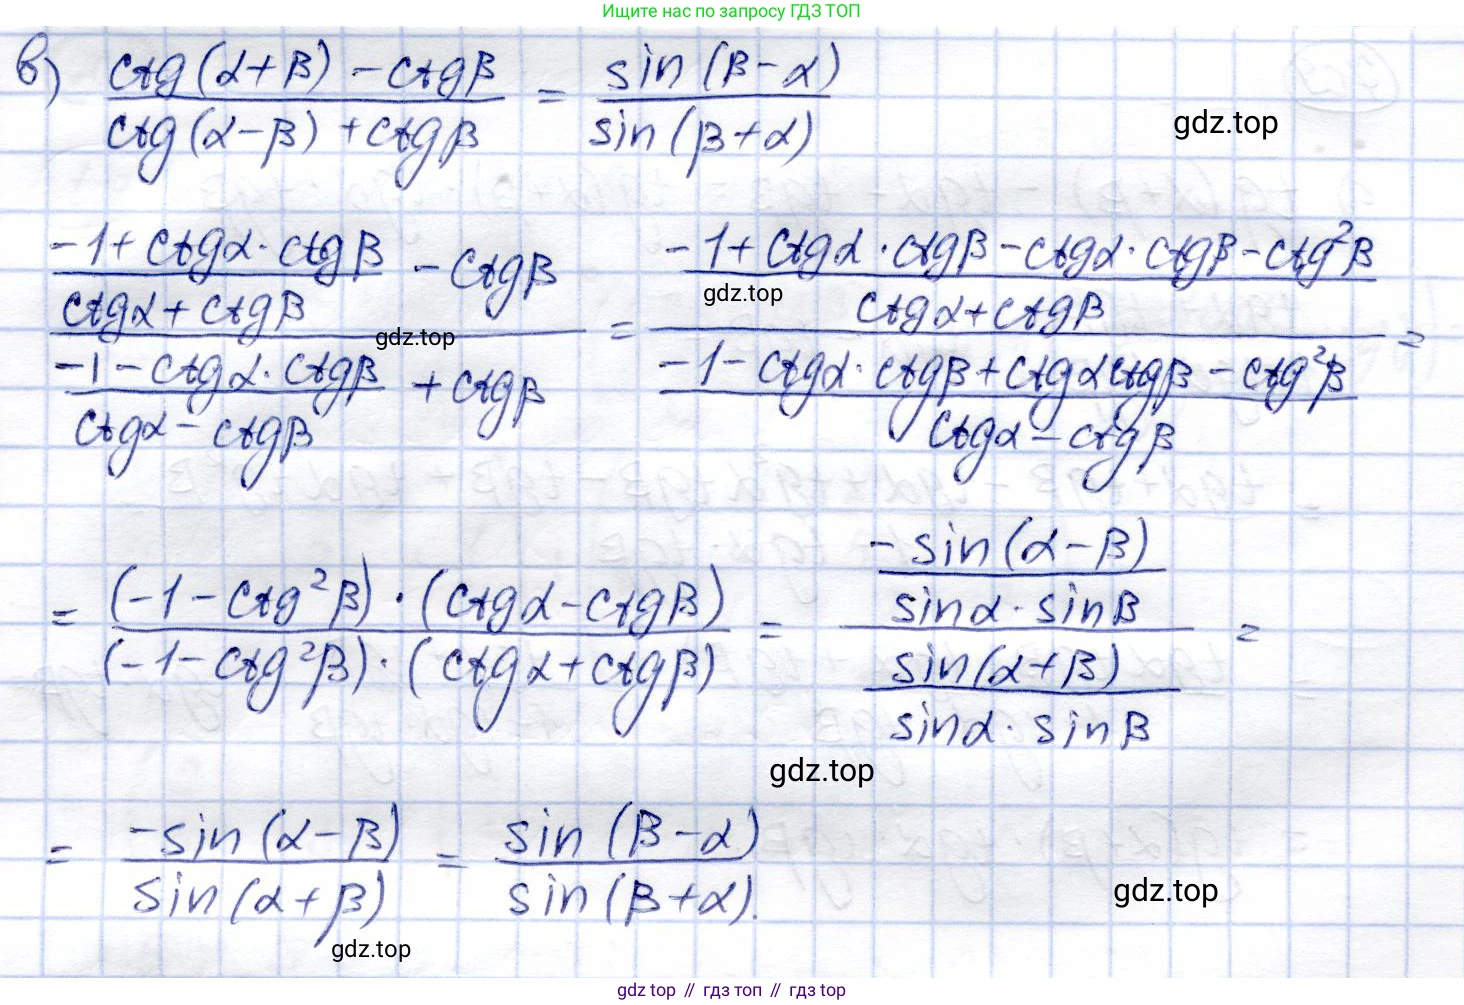 Ищите нас по запросу ГДЗ ТОП
в) (ctg(α+β) − ctgβ)/(ctg(α−β) + ctgβ) = sin(β−α)/sin(β+α)
gdz.top
((−1+ctgα·ctgβ)/(ctgα+ctgβ) − ctgβ)/((−1−ctgα·ctgβ)/(ctgα−ctgβ) + ctgβ) = ((−1+ctgα·ctgβ−ctgα·ctgβ−ctg²β)/(ctgα+ctgβ))/((−1−ctgα·ctgβ+ctgαctgβ−ctg²β)/(ctgα−ctgβ)) =
gdz.top
gdz.top
= ((−1−ctg²β)·(ctgα−ctgβ))/((−1−ctg²β)·(ctgα+ctgβ)) = (−sin(α−β)/(sinα·sinβ))/(sin(α+β)/(sinα·sinβ)) =
gdz.top
= −sin(α−β)/sin(α+β) = sin(β−α)/sin(β+α).
gdz.top
gdz.top
gdz top // гдз топ // gdz top